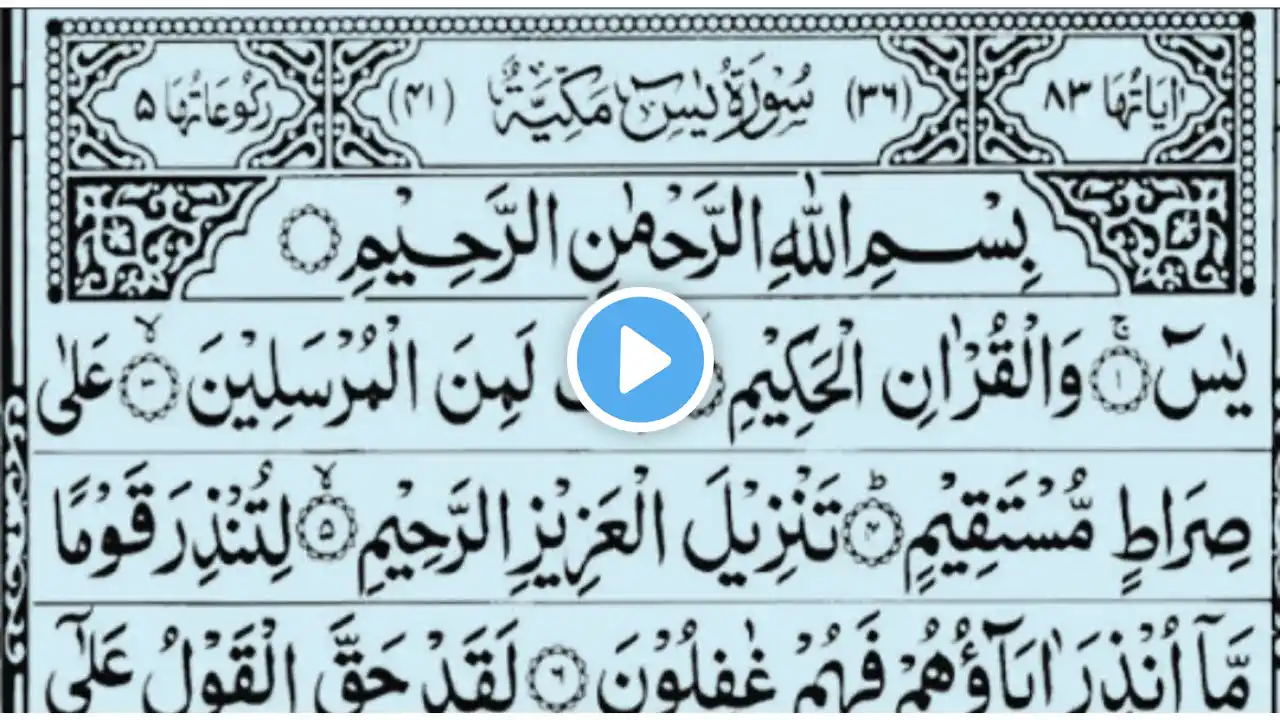 اٰيَاتُهَا ٨٣ (٣٦) سُوْرَةُ يٰسٓ مَكِّيَّةٌ (٤١) رُكُوْعَاتُهَا ۵
بِسْمِ اللّٰهِ الرَّحْمٰنِ الرَّحِيْمِ
يٰسٓ ۚ‏ ﴿١﴾ وَالْقُرْاٰنِ الْحَكِيْمِ لَمِنَ الْمُرْسَلِيْنَ ۙ‏ ﴿٣﴾ عَلٰى
صِرَاطٍ مُّسْتَقِيْمٍ ؕ‏ ﴿۴﴾ تَنْزِيْلَ الْعَزِيْزِ الرَّحِيْمِ ۙ‏ ﴿۵﴾ لِتُنْذِرَ قَوْمًا
مَّاۤ اُنْذِرَ اٰبَآؤُهُمْ فَهُمْ غٰفِلُوْنَ ﴿۶﴾ لَقَدْ حَقَّ الْقَوْلُ عَلٰٓى